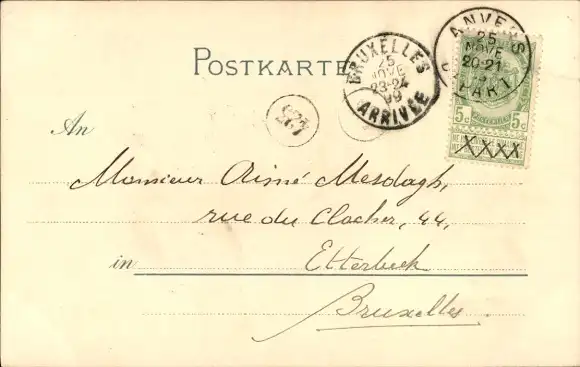 POSTKARTE
BRUXELLES
25
NOVE
23-24
99
ARRIVÉE
ANVERS
25
NOVE
20-21
DEPART
5c 5c
XXXX
An
Monsieur Aimé Mesdagh,
rue du Clocher, 44,
in Etterbeek
Bruxelles.